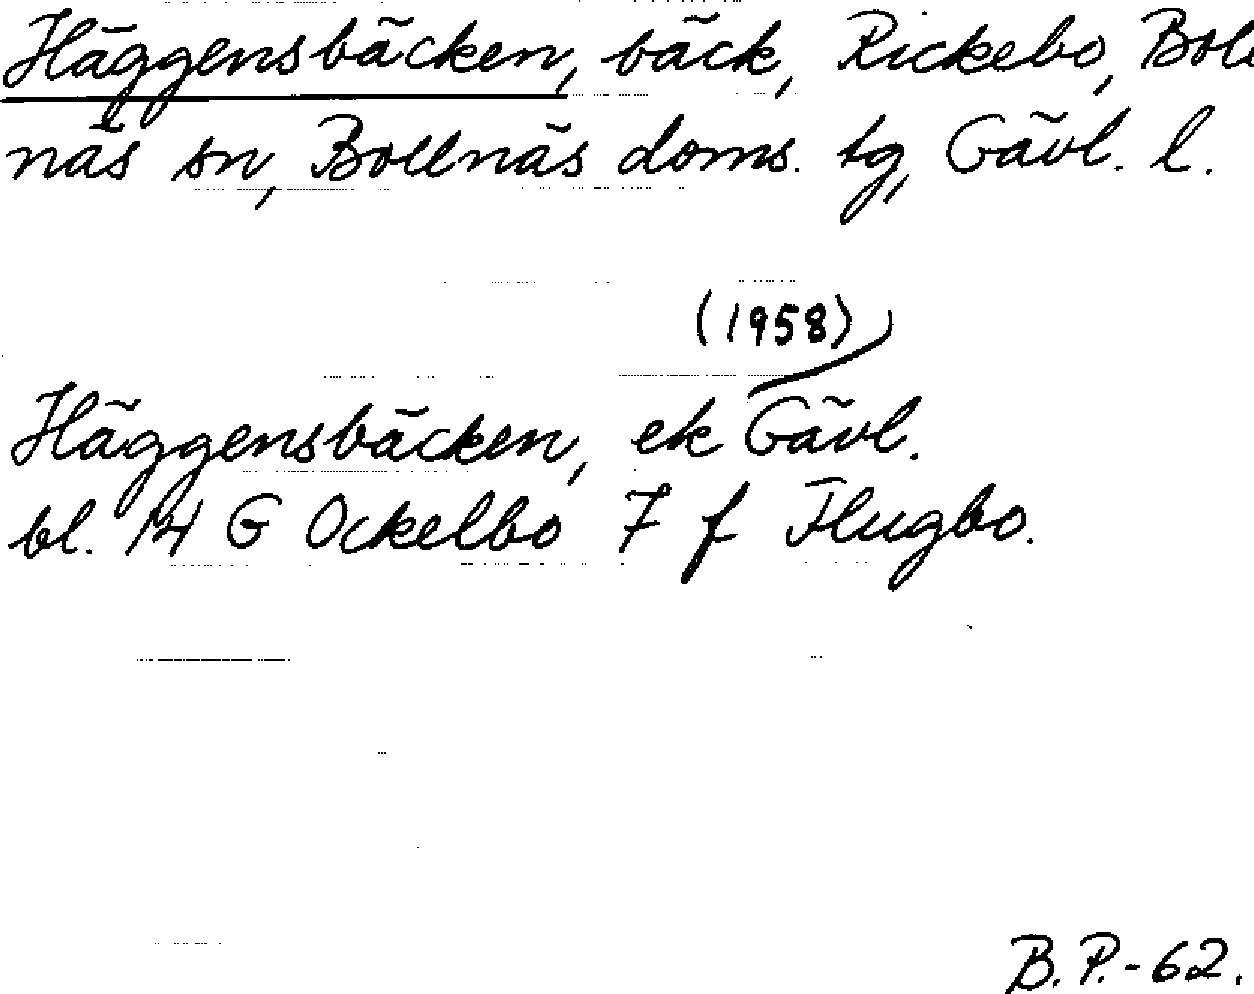 Häggensbäcken, bäck, Rickebo, Boll
näs sn, Bollnäs doms. tg, Gävl. l.
(1958)
Häggensbäcken, ek Gävl.
bl. 14 G Ockelbo 7 f Flugbo.
B.P.-62.